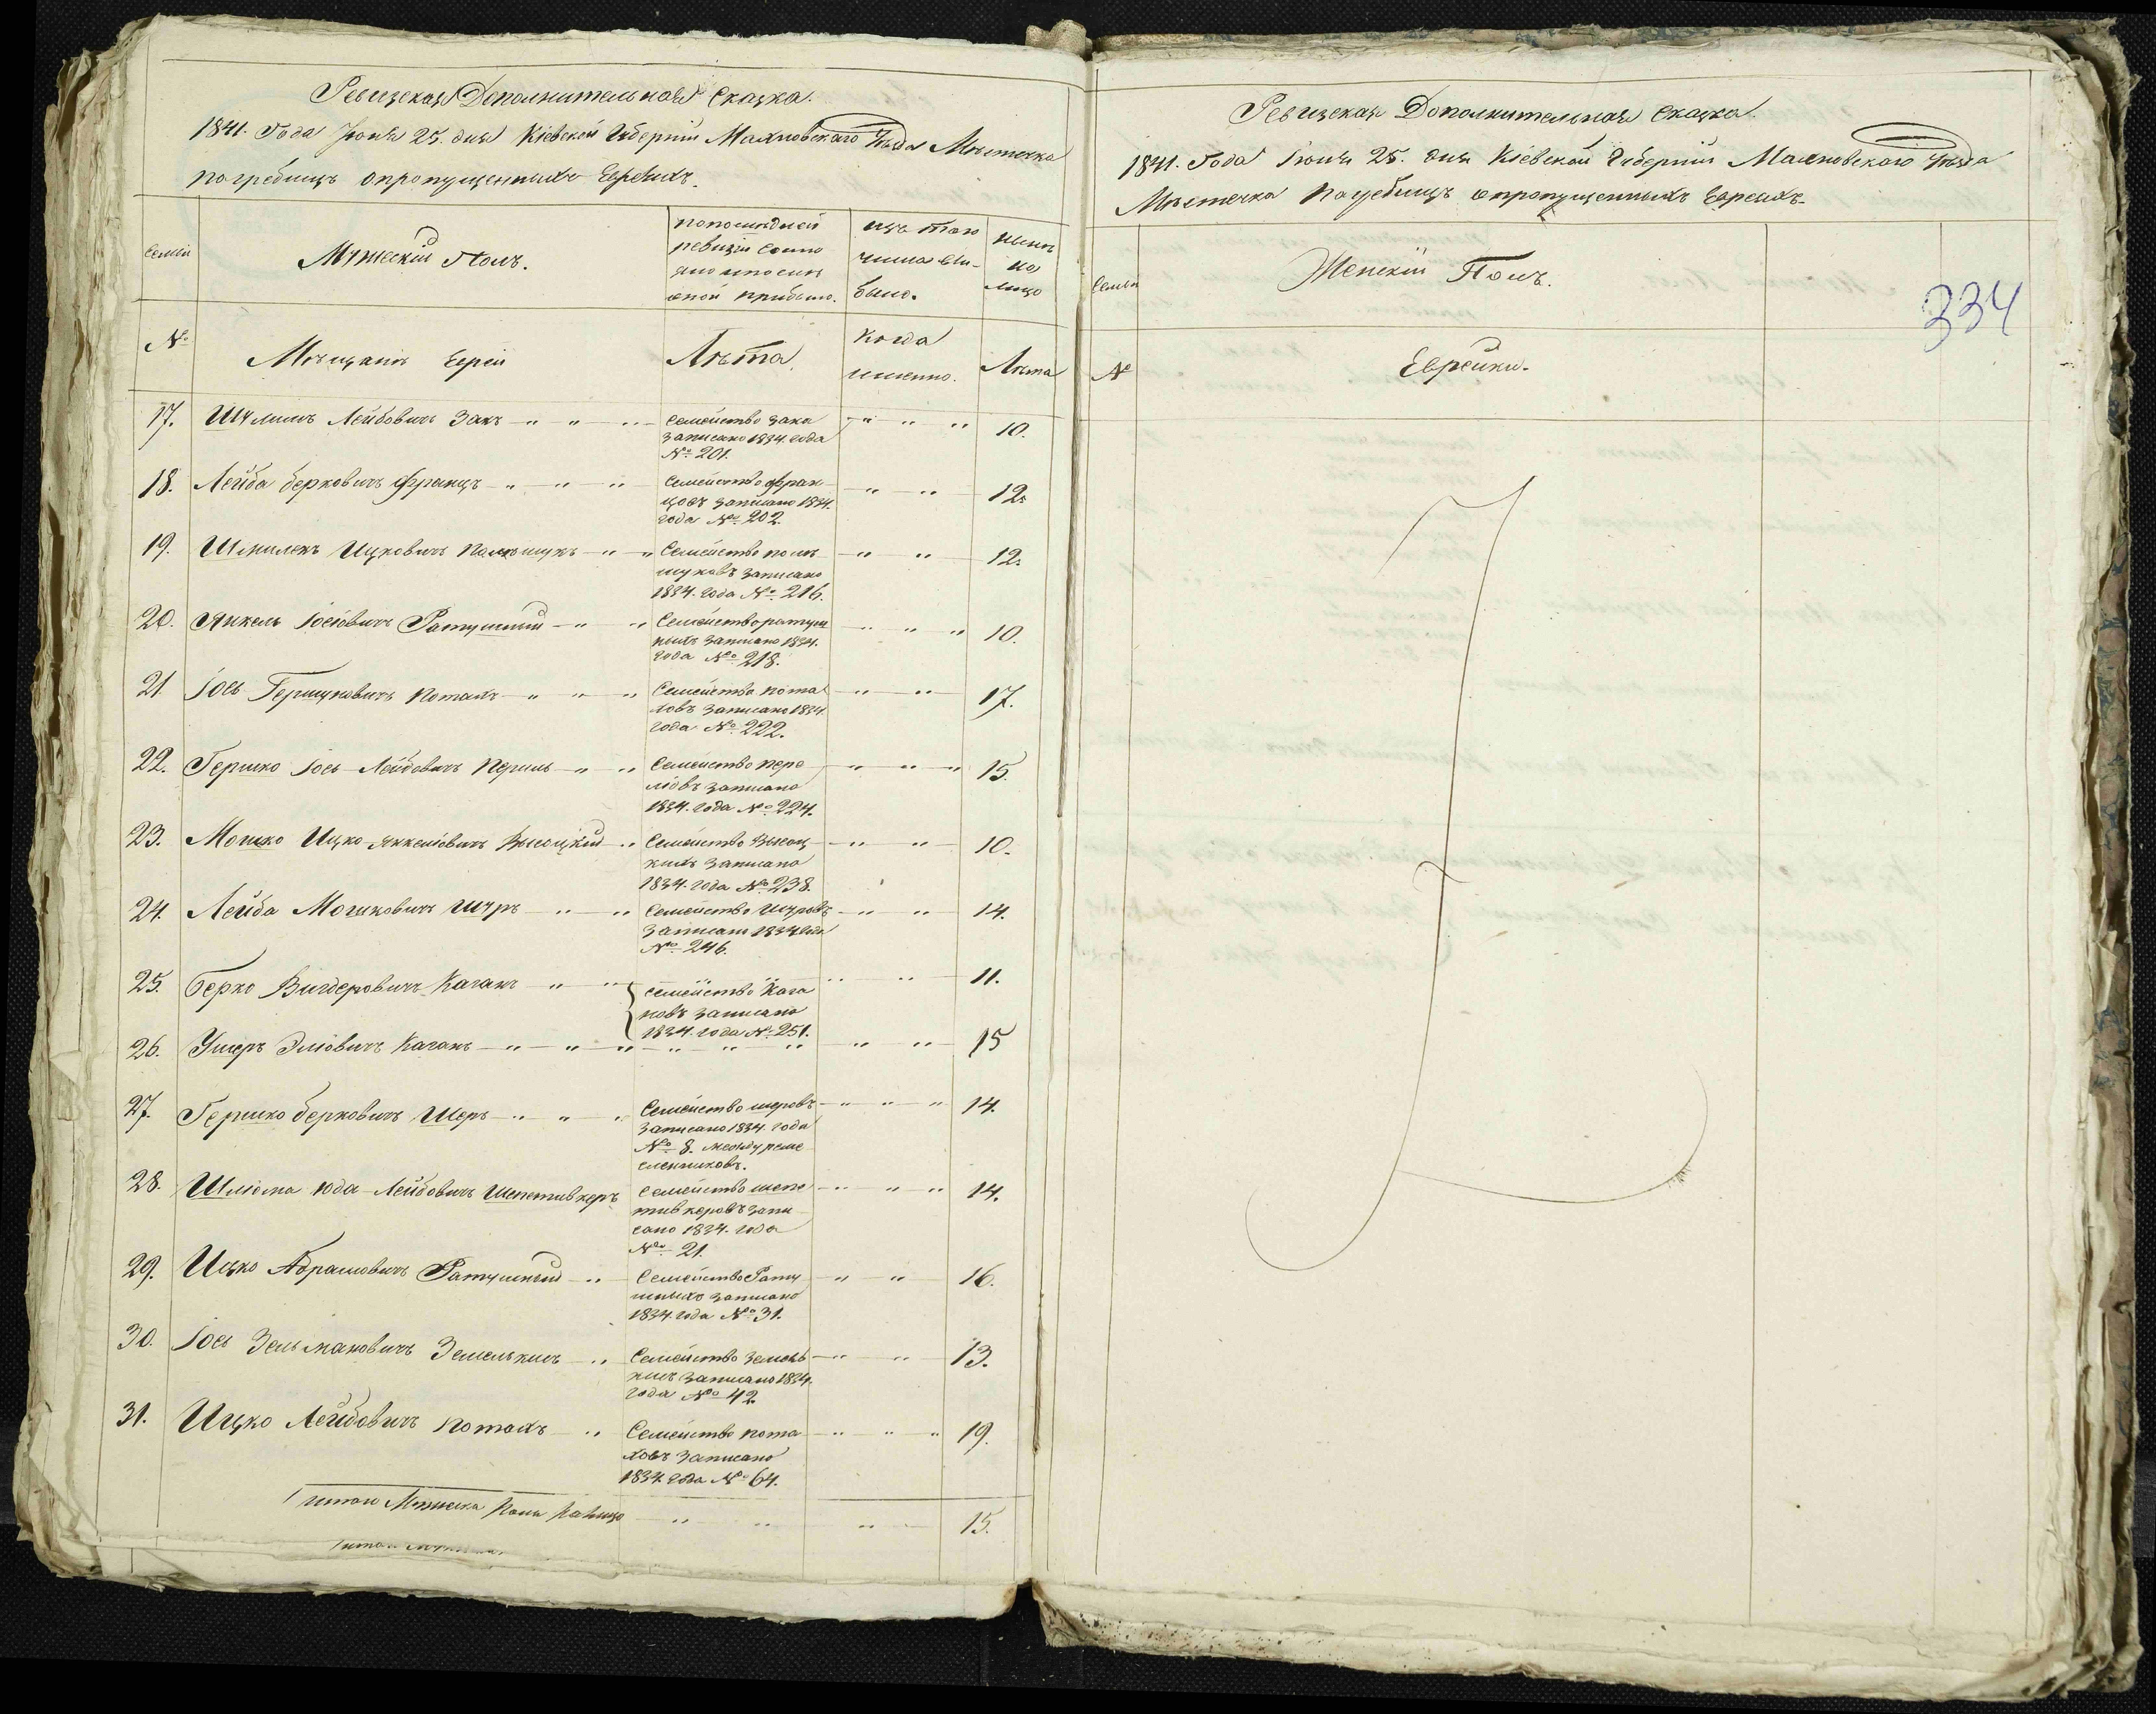 Ревизская Дополнительная Сказка.
1841. Года Іюня 25. дня Кіевской Губерніи Махновскаго Уѣзда Мѣстечка
Погребищъ опропущенныхъ Евреяхъ.
Семьи
Мужескій Полъ.
попослѣдней
ревизіи состо
яло ипослѣ
оной прибыло.
изъ того
числа вы-
было.
нынѣ
на
лицо
№
Мѣщанъ Евреи
Лѣта.
когда
именно.
Лѣта
17. Шулимъ Лейбовичъ Закъ - " - " - " - Семейство Зака - " - " - " 10.
записано 1834 года
№ 201.
18. Лейба Берковичъ Францъ - " - " - " Семейство Фран - " - " - 12.
цовъ записано 1834.
года № 202.
19. Шмилекъ Ицковичъ - " - " Семейство - " - " - 12.
щуковъ записано
1834. года № 216.
20. Янкель Іосіовичъ Ратушный - " - " Семейство ратуш - " - " - " 10.
ныхъ записано 1834.
года № 218.
21 Іось Гершковичъ Потахъ - " - " - " Семейство пота - " - " - 17.
ховъ записано 1834
года № 222.
22. Гершко Іось-Лейбовичъ Перель - " - " Семейство пере - " - " - " 15.
лѣовъ записано
1834. года № 224.
23. Мошко Ицко-Янкеліовичъ Высоцкій - " Семейство Высоц - " - " - 10.
кихъ записано
1834. года № 238.
24. Лейба Мошковичъ Шуръ - " - " Семейство Шуровъ - " - " - 14.
записано 1834 года
№ 246.
25. Берко Вигдеровичъ Каганъ - " - " Семейство Кага - " - " - 11.
новъ записано
1834. года № 251.
26. Ушеръ Эліовичъ Каганъ - " - " - " - " - " - " - " - " - 15
27. Гершко Берковичъ Шеръ - " - " - " Семейство шеровъ - " - " - " 14.
записано 1834. года
№ 8. между реме
сленниковъ.
28. Шліома Юда-Лейбовичъ Шепетивкеръ Семейство шепе - " - " - " 14.
тивкеровъ запи
сано 1834. года
№ 21.
29. Ицко Абрамовичъ Ратушный - " - Семейство Рату - " - " - 16.
шныхъ записано
1834. года № 31.
30. Іось Зельмановичъ Земелькисъ - " Семейство Земель - " - " - 13.
кисъ записано 1834.
года № 42
31. Ицко Лейбовичъ Потахъ - " Семейство пота - " - " - " 19.
ховъ записано
1834. года № 64.
Итого Мужеска Пола Налицо - " - " - " - 15.
Ревизская Дополнительная Сказка.
1841. Года Іюня 25. дня Кіевской Губерніи Махновскаго Уѣзда
Мѣстечка Погребищъ опропущенныхъ Евреяхъ.
Семьи
Женскій Полъ.
334
№
Еврейки.